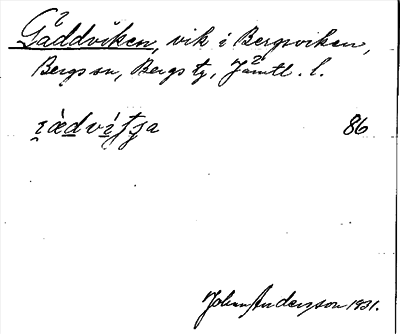 Gäddviken, vik i Bergsviken,
Bergs sn, Bergs tg, Jämtl. l.
86
Johan Anderzson 1931.